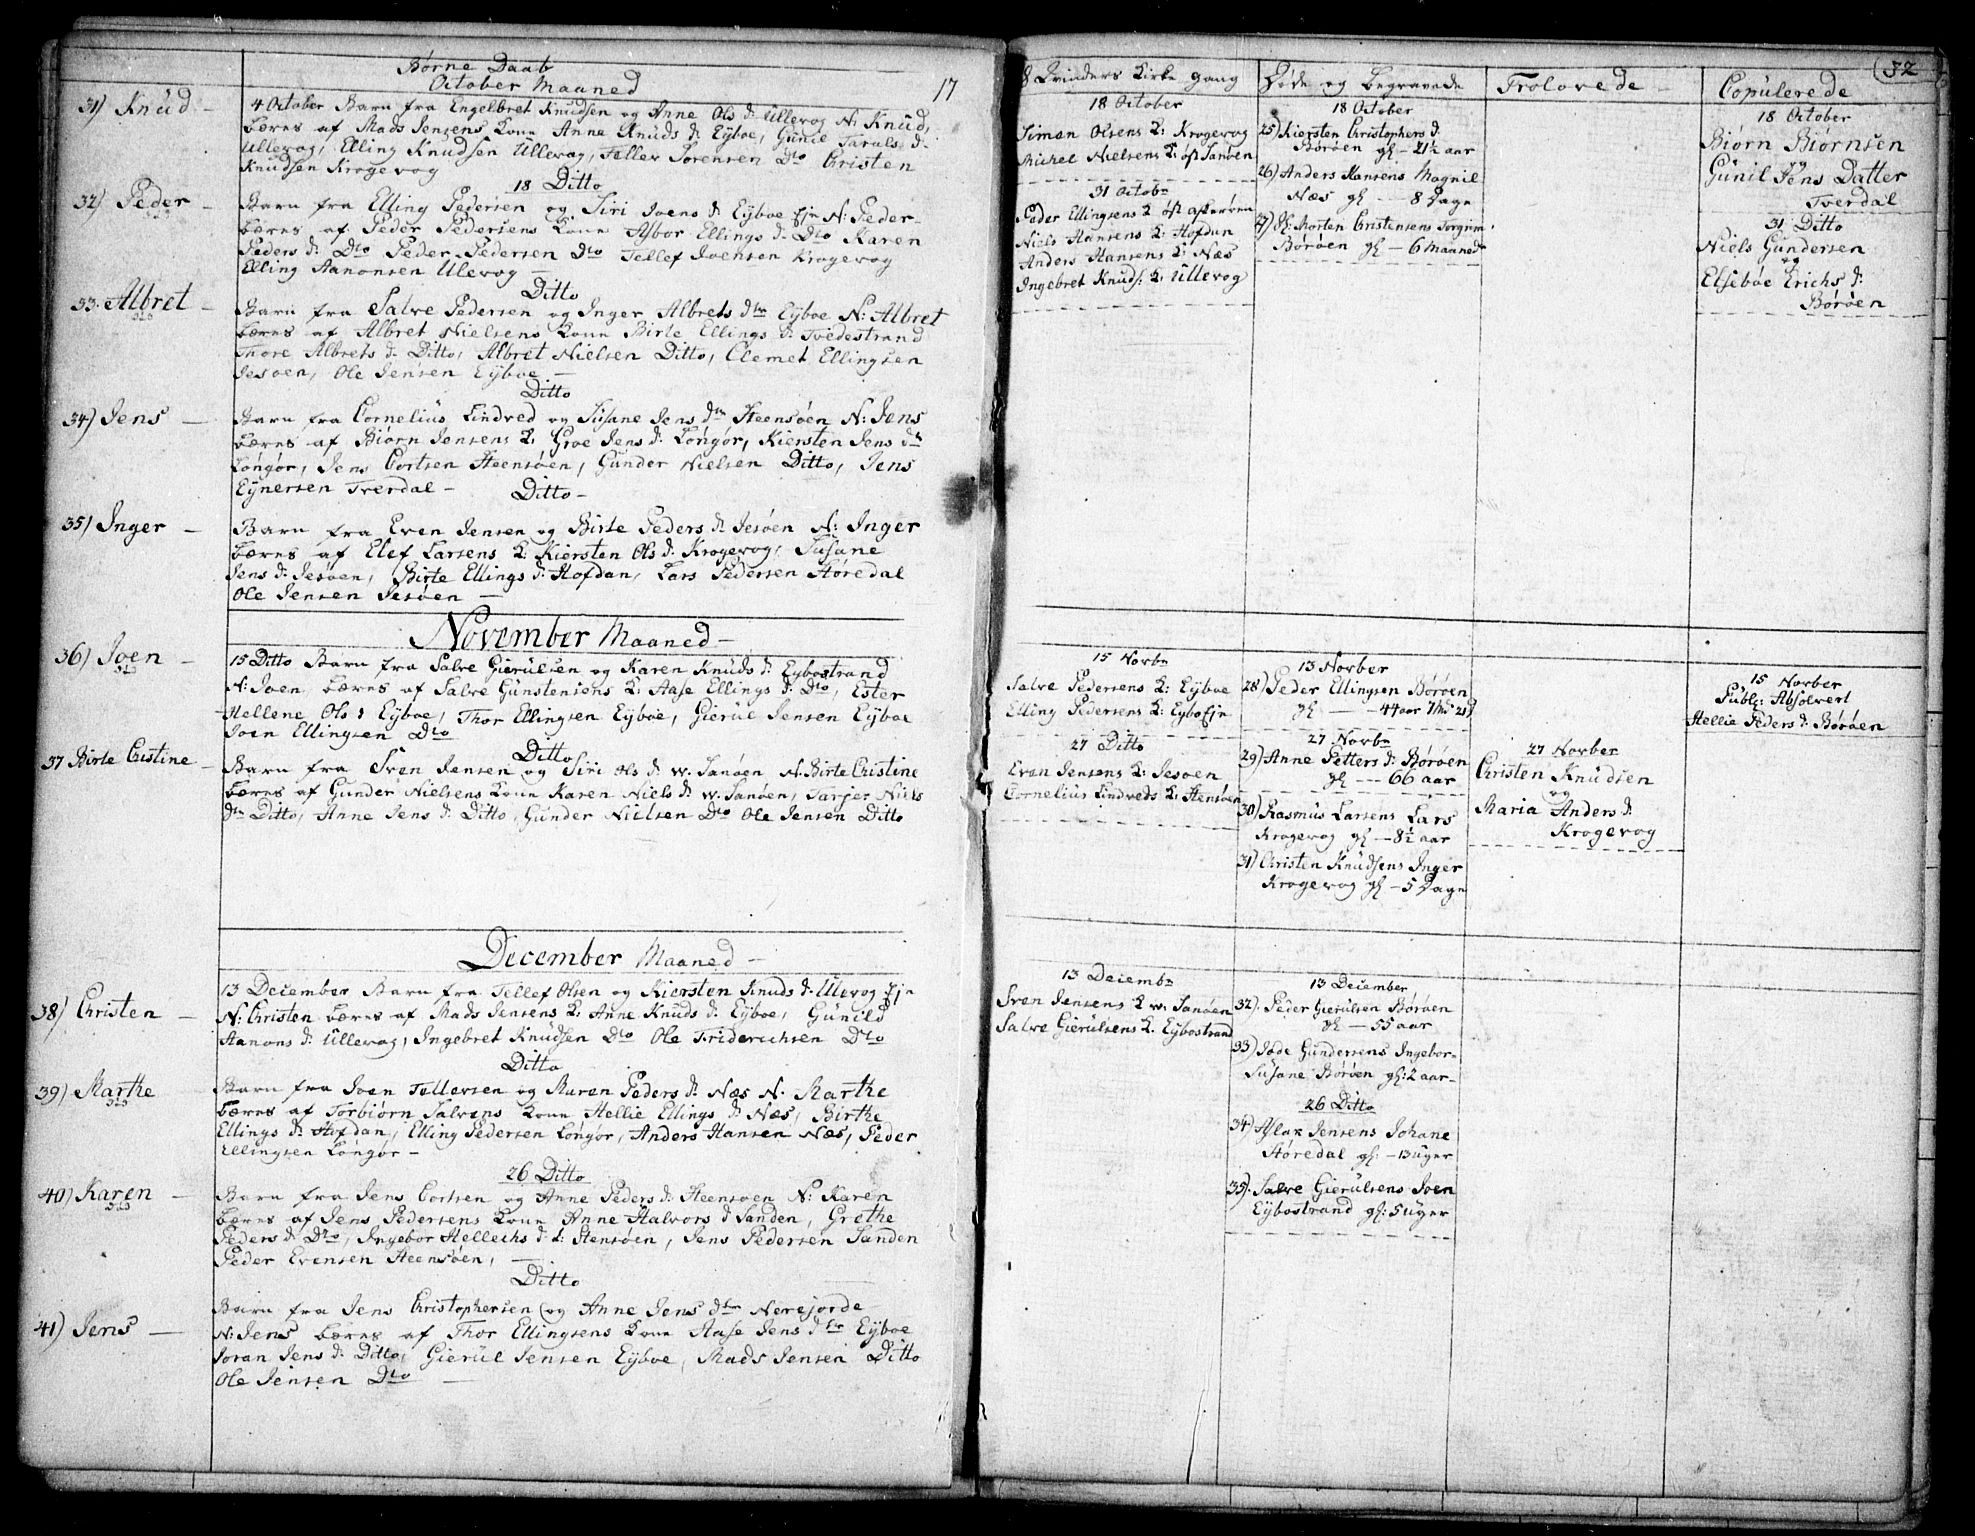 Børne Daab
October Maaned
17
31) Knud -
4 October Barn fra Engelbret Knudsen og Anne Ols d: Ullevog N: Knud,
bæres af Mads Jensens Kone Anne Knuds d: Eÿboe, Gunil Taruls d:
Ullevog, Elling Knudsen Ullevog, Tellev Sørensen Dto Christen
Knudsen Krogevog
18 Ditto
32) Peder -
Barn fra Elling Pedersen og Siri Joens d: Eÿboe Eje N: Peder-
bæres af Peder Pedersens Kone Asbor Ellings d: Dto Karen
Peders d: Dto Peder Pedersen Dto Tellef Joensen Krogevog
Elling Aanonsen Ulevog -
Ditto
33. Albret -
Barn fra Salve Pedersen og Inger Albrets dtr Eÿboe N: Albret
bæres af Albret Nielsens Kone Birte Ellings d: Tvedestrand
Thore Albrets d: Ditto, Albret Nielsen Ditto, Clemet Ellingsen
Jesøen, Ole Jensen Eÿboe -
Ditto
34) Jens -
Barn fra Cornelius Lindved og Susane Jens dtr Steensøen N: Jens
bæres af Biørn Jensens K: Groe Jens d: Longør, Kiersten Jens dtr
Longør, Jens Cortsen Steensøen, Gunder Nielsen Ditto, Jens
Eÿnersen Tverdal -
Ditto -
35) Inger -
Barn fra Even Jensen og Birte Peders d: Jesøen N: Inger
bæres af Elef Larsens K: Kiersten Ols d: Krogevog, Susane
Jens d: Jesøen, Birte Ellings d: Hofdan, Lars Pedersen Støredal
Ole Jensen Jesøen -
November Maaned -
36) Joen -
15 Ditto Barn fra Salve Gierulsen og Karen Knuds d: Eÿbostrand
N: Joen, bæres af Salve Gunstensens K: Aase Ellings d: Dto, Ester
Hellene Ols d Eÿboe, Thor Ellingsen Eÿboe, Gierul Jensen Eÿboe
Joen Ellingsen Dto
Ditto
37 Birte Cristine -
Barn fra Sven Jensen og Siri Ols d: W. Sanøen N: Birte Cristine
bæres af Gunder Nielsens Kone Karen Niels d: W. Sanøen, Tarjer Niels
dtr Ditto, Anne Jens d: Ditto, Gunder Nielsen Dto Ole Jensen Ditto
December Maaned -
38) Christen -
13 December Barn fra Tellef Olsen og Kiersten Knuds d: Ulevog Eje
N: Christen bæres af Mads Jensens K: Anne Knuds d: Eÿboe, Gunild
Aanons d: Ullevog, Ingebret Knudsen Dto Ole Friderichsen Dto
Ditto
39) Marthe -
Barn fra Joen Tellevsen og Maren Peders d: Næs N: Marthe
bæres af Torbiørn Salvens Kone Hellie Ellings d: Næs, Birthe
Ellings d: Hofdan, Elling Pedersen Longør, Anders Hansen Næs, Peder
Ellingsen Longør -
26 Ditto
40) Karen -
Barn fra Jens Cortsen og Anne Peders d: Steensøen N: Karen
bæres af Jens Pedersens Kone Anne Halvors d Sanden, Grethe
Peders d: Dto, Ingebor Hellechs d: L: Stensøen, Jens Pedersen Sanden
Peder Evensen Steensøen, -
Ditto
41) Jens -
Barn fra Jens Christophersen og Anne Jens dtr Nerejorde
N: Jens bæres af Thor Ellingsens Kone Aase Jens dtr Eÿboe
Joran Jens d: Ditto, Gierul Jensen Eÿboe, Mads Jensen Ditto
Ole Jensen Dto -
32
Qvinders Kirke gang
18 October
Simon Olsens K: Krogevog
Michel Nielsens K: øst Sanøen
31 Octobr
Peder Ellingsens K øst Askerøen
Niels Hansens K: Hofdan
Anders Hansens K: Næs
Ingebret Knuds: K: Ullevog
15 Novbr
Salve Pedersens K: Eÿboe
Elling Pedersens K: Eÿbo Eje
27 Ditto
Even Jensens K: Jesøen
Cornelius Lindveds K: Stensøen
13 Decembr
Sven Jensens K W. Sanøen
Salve Gierulsens K: Eÿbostrand
Døde og Begravede
18 October
25) Kiersten Christophers d:
Borøen gl - 21½ aar
26) Anders Hansens Magnil
Næs gl - 8 Dage
27) Sl: Morten Christensens Torgrim
Borøen gl - 6 Maaned
13 Novber
28) Peder Ellingsen Borøen
gl - 44 aar 7 Md 21 D
27 Novbr
29) Anne Petters d: Borøen
gl - 66 aar
30) Rasmus Larsens Lars
Krogevog gl - 8½ aar
31) Christen Knudsens Inger
Krogevog gl - 5 Dage
13 December
32) Peder Gierulsen Borøen
gl - 55 aar
33) Jode Gundersens Ingebor-
Susane Borøen gl: 2 aar -
26 Ditto
34) Aslak Jensens Johane
Støredal gl: - 13 uger
35) Salve Gierulsens Joen
Eÿbostrand gl: 5 uger
Trolovede -
27 Novber
Christen Knudsen
og
Maria Anders d:
Krogevog
Copulerede
18 October
Biørn Biørnsen
og
Gunil Jens Datter
Tverdal
31 Ditto
Niels Gundersen
og
Elsebøe Erichs d:
Borøen
15 Novber
Publ: Absolvert
Hellie Peders d: Borøen